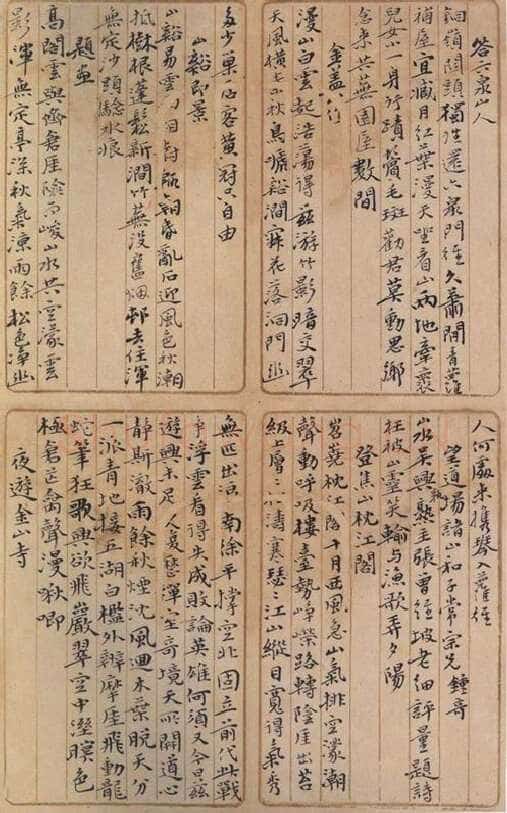 答六泉山人
銅嶺關頭獨往還六泉門徑久蕭閒青蘿
補屋宜藏月紅葉漫天坐看山兩地牽裹
兒女小一身行蹟鬢毛斑勸君莫動思鄉
念來共蕪園屋數間
金蓋
漫山白雲起浩蕩得茲游竹影暗交翠
天風橫七小秋鳥癡谿澗寐花落洞門幽
多少巢居客黃冠只自由
山谿即景
山谿易雲日朝昏亂石迎風色秋潮
抵樹根蓬鬆新澗竹蕪沒舊烟邨去住渾
無定沙頭驗水痕
題畫
高閣雲與齊倉厓陰而峻山水共空濛雲
影渾無定亭深秋氣涼雨餘松色淨幽
人何處來攜琴入蘿徑
望道場諸山和子常宗先鍾奇
山水吳興熟主張曾經坡老細評量題詩
狂被山靈笑輸與漁歌弄夕陽
登焦山枕江閣
岧嶤枕江閣十月西風急山氣排空濛潮
聲動呼吸樓臺勢崢嶸路轉陰厓出苔
級上層二八濤寒瑟二江山縱目寬得氣秀
無匹出沒南徐平撐空北固立前代此戰
爭浮雲看得失成敗論英雄何須又今日茲
遊興未足人憂愁渾空奇境天所開道心
靜斯澈雨餘秋煙沈風迴木葉脫天分
一派青地接五湖白檻外辯摩厓飛動龍
蛇筆狂歌興欲飛巖翠空中溼暝色
極倉茫禽聲漫啾唧
夜遊金山寺